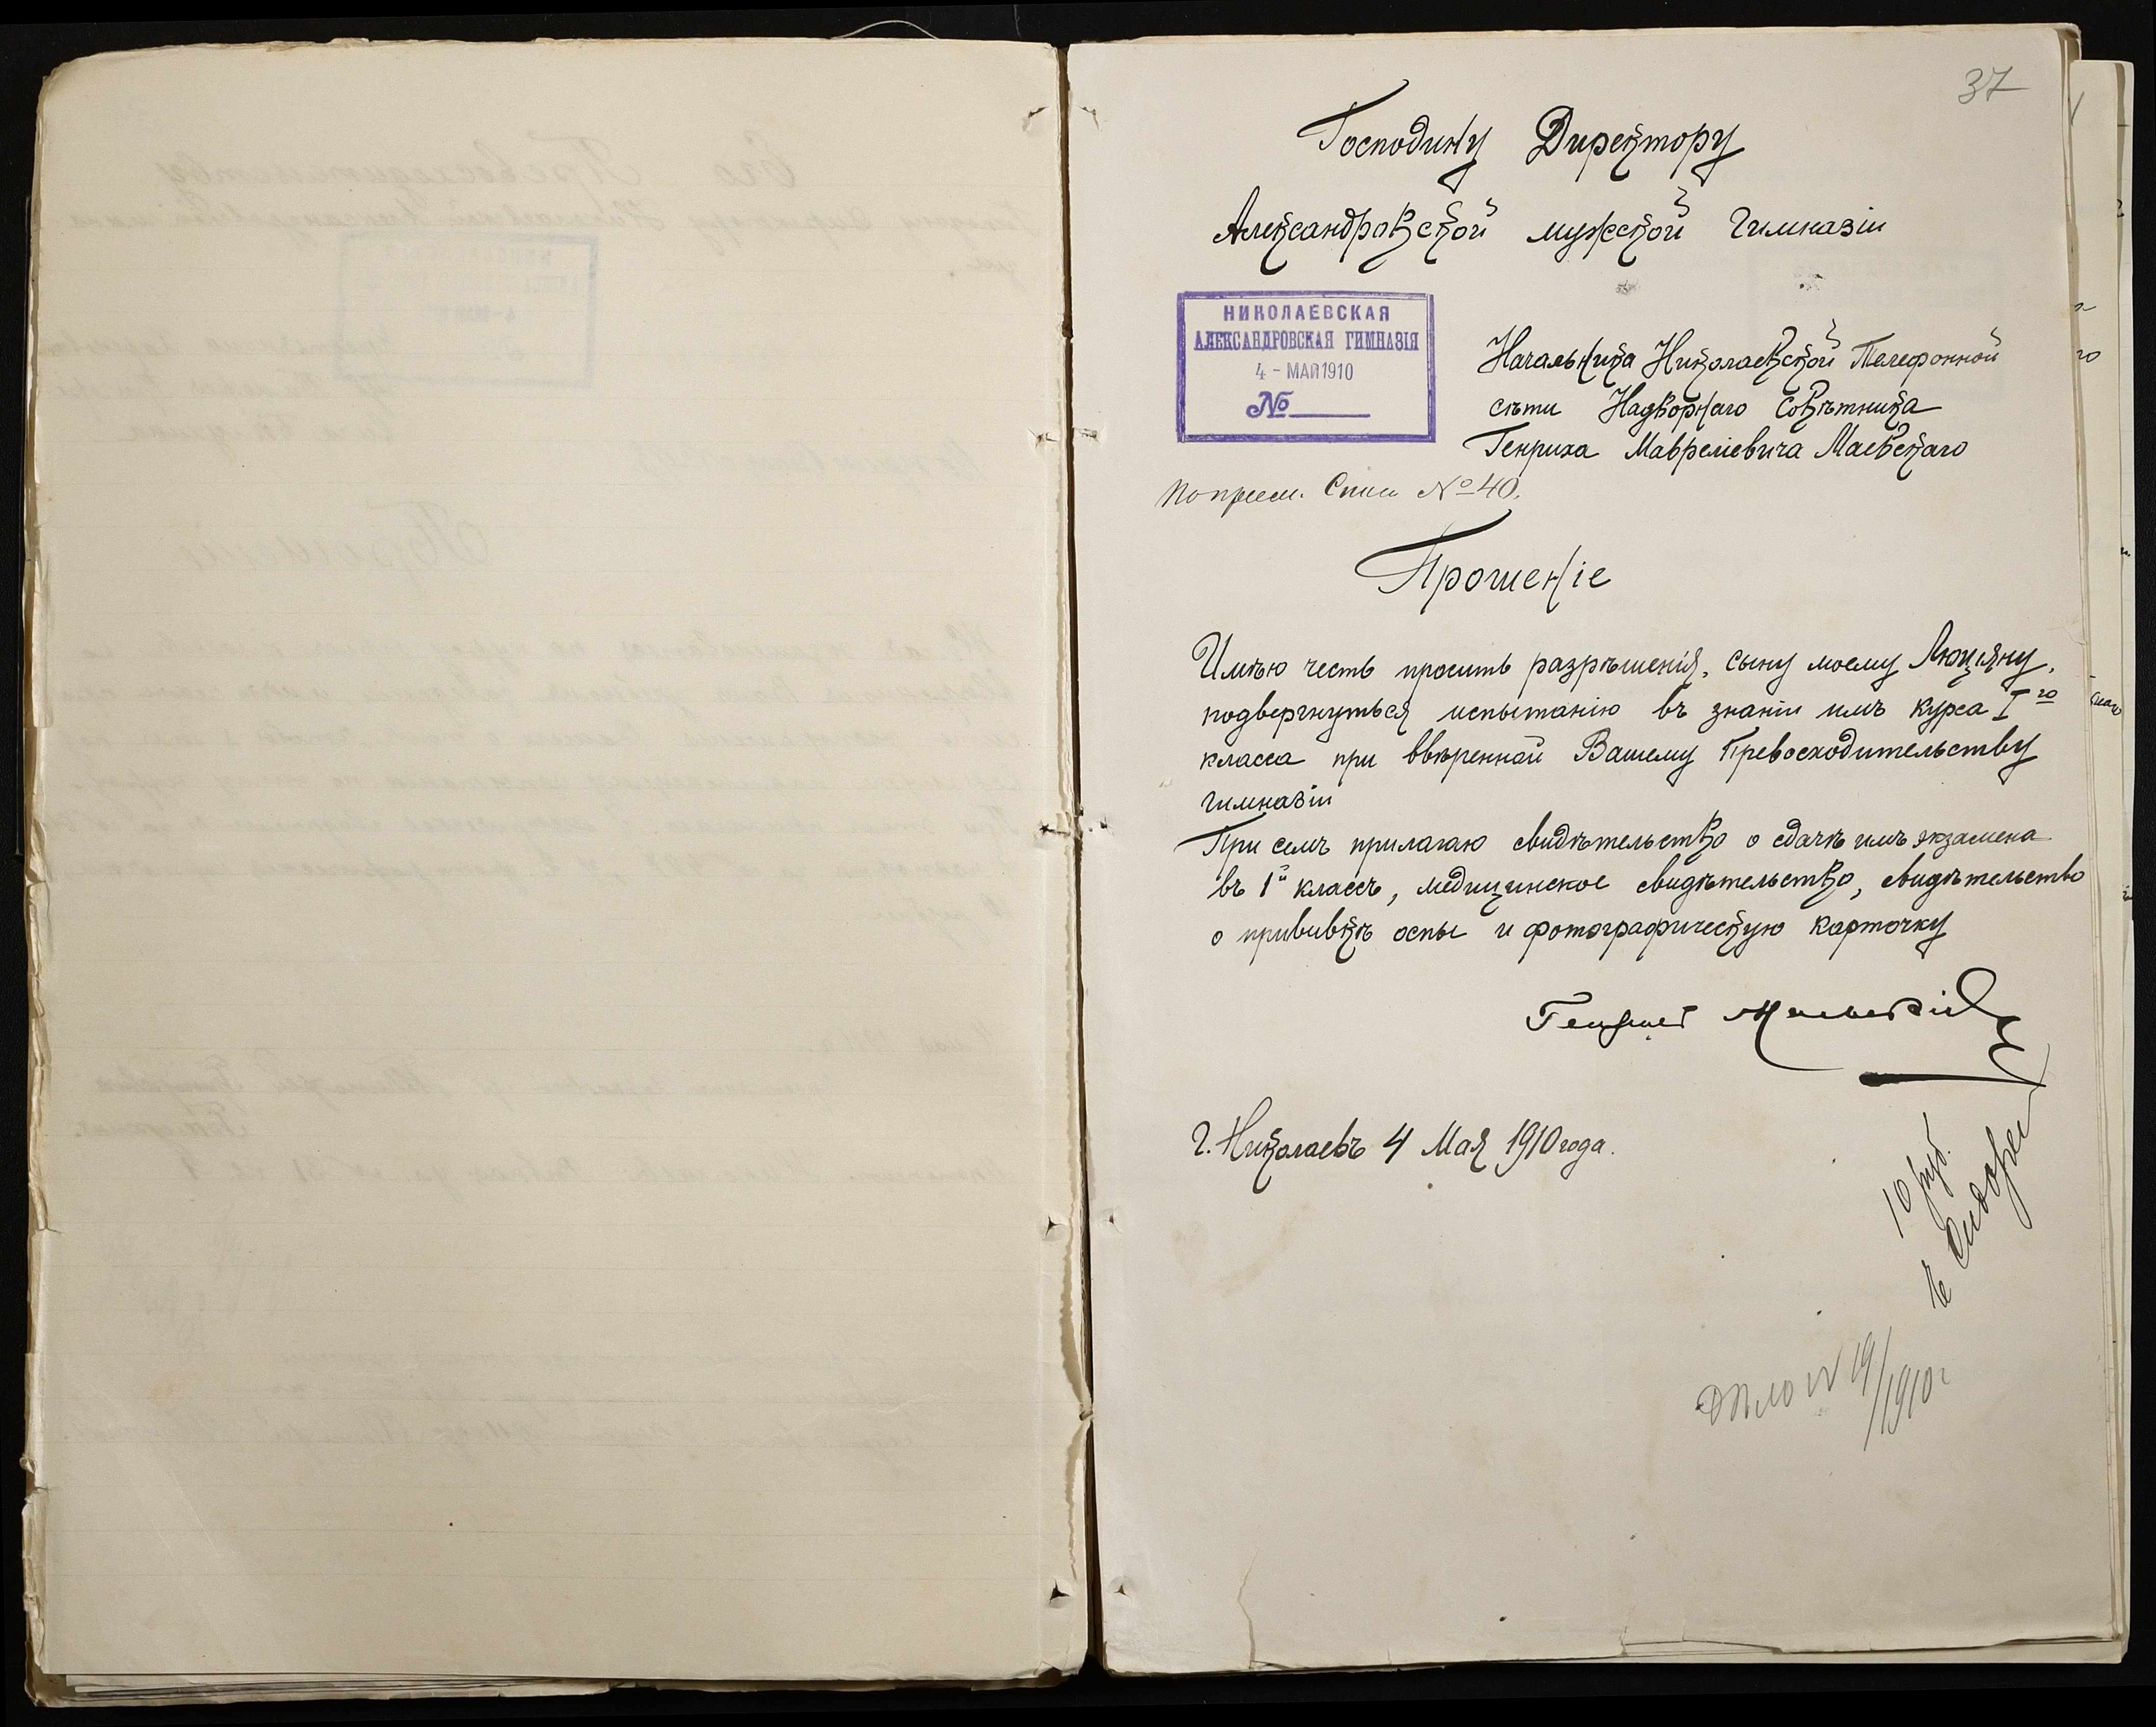 37
Господину Директору
Александровской мужской Гимназіи
НИКОЛАЕВСКАЯ
АЛЕКСАНДРОВСКАЯ ГИМНАЗІЯ
4 - МАЯ 1910
№
Начальника Николаевской Телефонной
сѣти Надворнаго Совѣтника
Генриха Маврелiевича Маевскаго
№ 40.
Прошеніе
Имѣю честь просить разрѣшенія, сыну моему Люціяну,
подвергнуться испытанію въ знаніи имъ курса I го
класса при ввѣренной Вашему Превосходительству
гимназіи
При семъ прилагаю свидѣтельство о сдачѣ имъ экзамена
въ 1й классъ, медицинское свидѣтельство, свидѣтельство
о прививкѣ оспы и фотографическую карточку
Генрихъ Маевскій
Г. Николаевъ 4 Мая 1910 года.
10 руб.
Дѣло № 19/1910 г